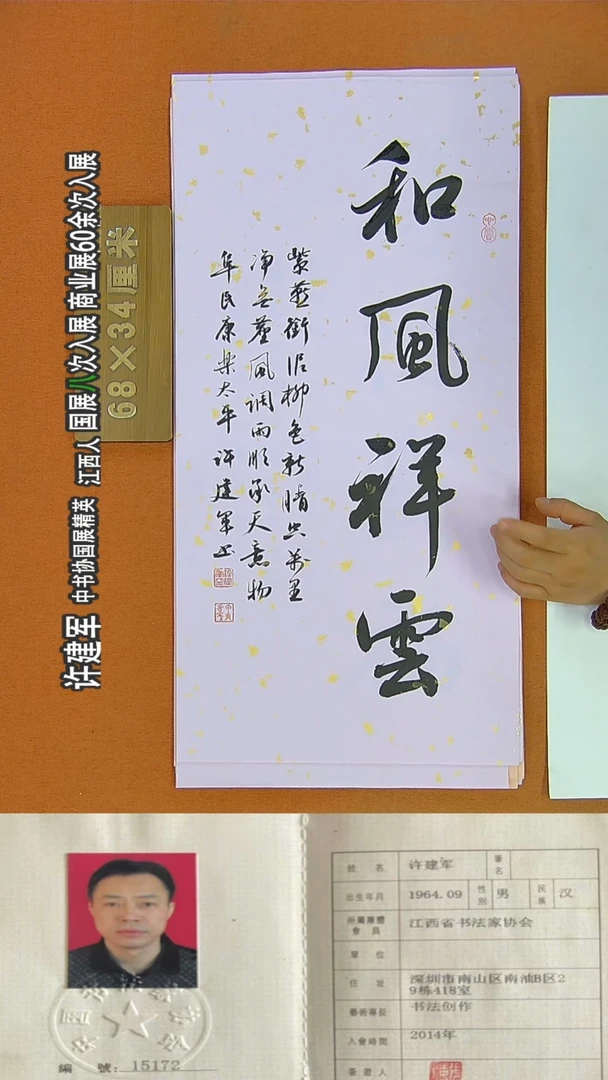 和風祥雲
紫燕銜泥柳色新晴空萬里
净無塵風調雨順承天意物
阜民康樂太平 许建軍书
68×34厘米
许建军 中书协国展精英 江西人 国展八次入展 商业展60余次入展
姓 名 许建军 筆名
出生年月 1964.09 性别 男 民族 汉
所屬團體會員 江西省书法家协会
單 位
住 址 深圳市南山区南油B区29栋418室
藝術專長 书法创作
入會時間 2014年
簽證人
編 號: 15172